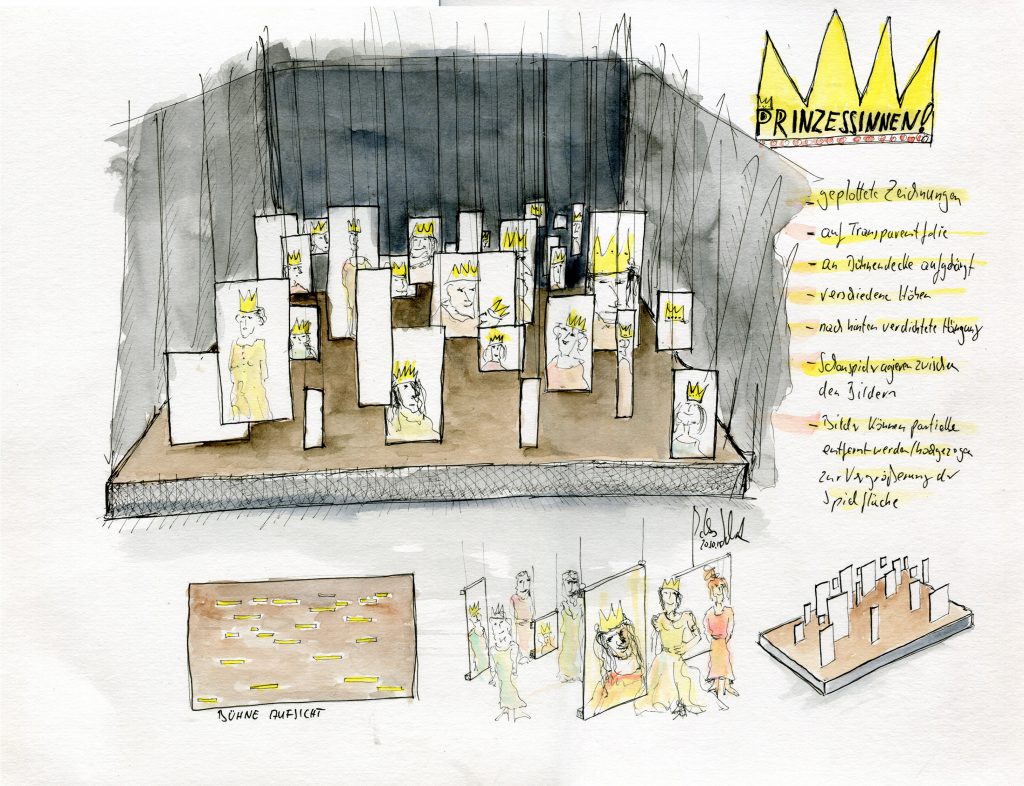 PRINZESSINNEN!
- geplottete Zeichnungen
- auf Transparentfolie
- an Bühnendecke aufgehängt
- verschiedene Höhen
- nach hinten verdichtete Hängung
- Schauspieler agieren zwischen
den Bildern
- Bilder können partielle
entfernt werden/hochgezogen
zur Vergrößerung der
Spielfläche
BÜHNE AUFSICHT